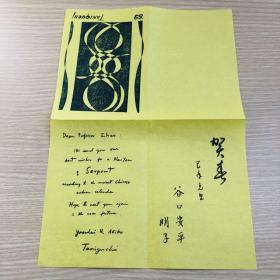 68.
Dear Professor Zhao:
We send you our
best wishes for a New Year
of Serpent
according to the ancient Chinese
calendar
Hope to meet you again
in the near future
Yasuhei & Akiko
Taniguchi
贺春
元旦
谷口安平
明子